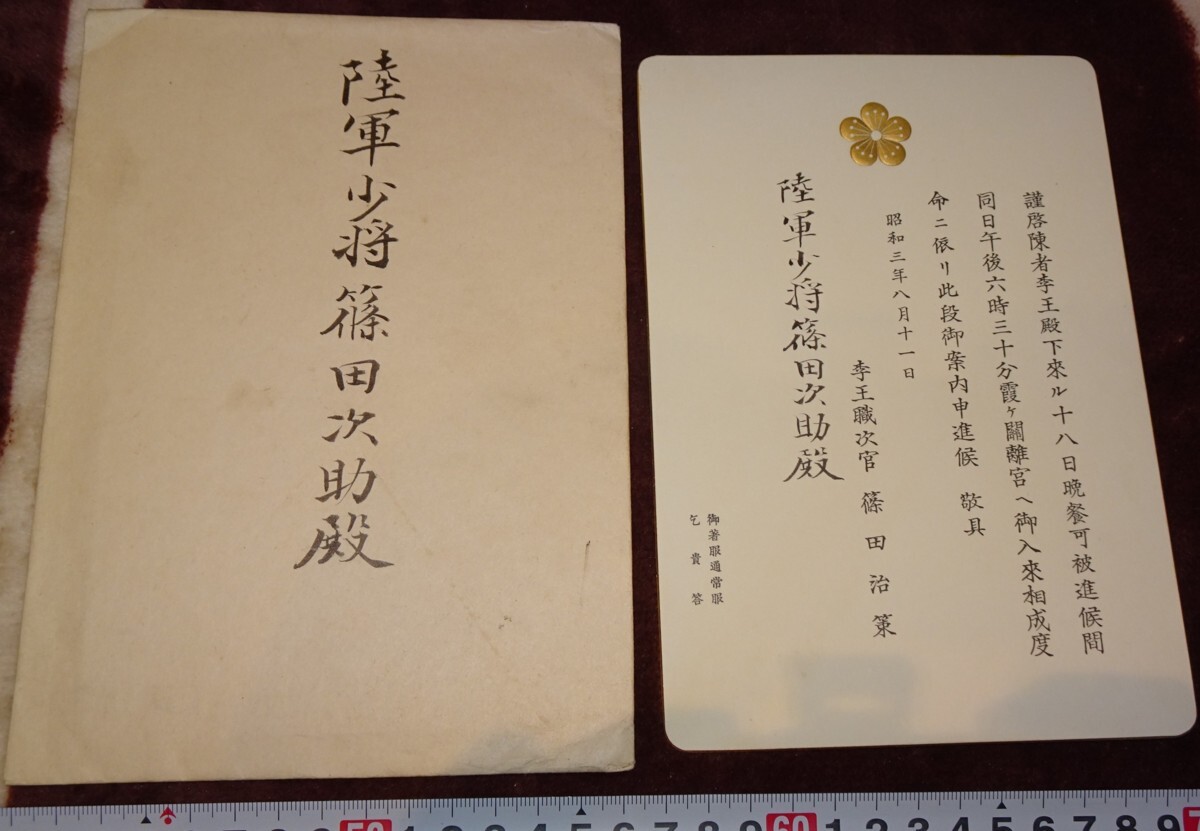 陸軍少将篠田次助殿
謹啓陳者李王殿下來ル十八日晩餐可被進候間
同日午後六時三十分霞ヶ關離宮ヘ御入來相成度
命ニ依リ此段御案内申進候 敬具
昭和三年八月十一日
李王職次官 篠田治策
陸軍少将篠田次助殿
御著服通常服
乞貴答
50 1 2 3 4 5 6 7 8 9 60 1 2 3 4 5 6 7 8 9